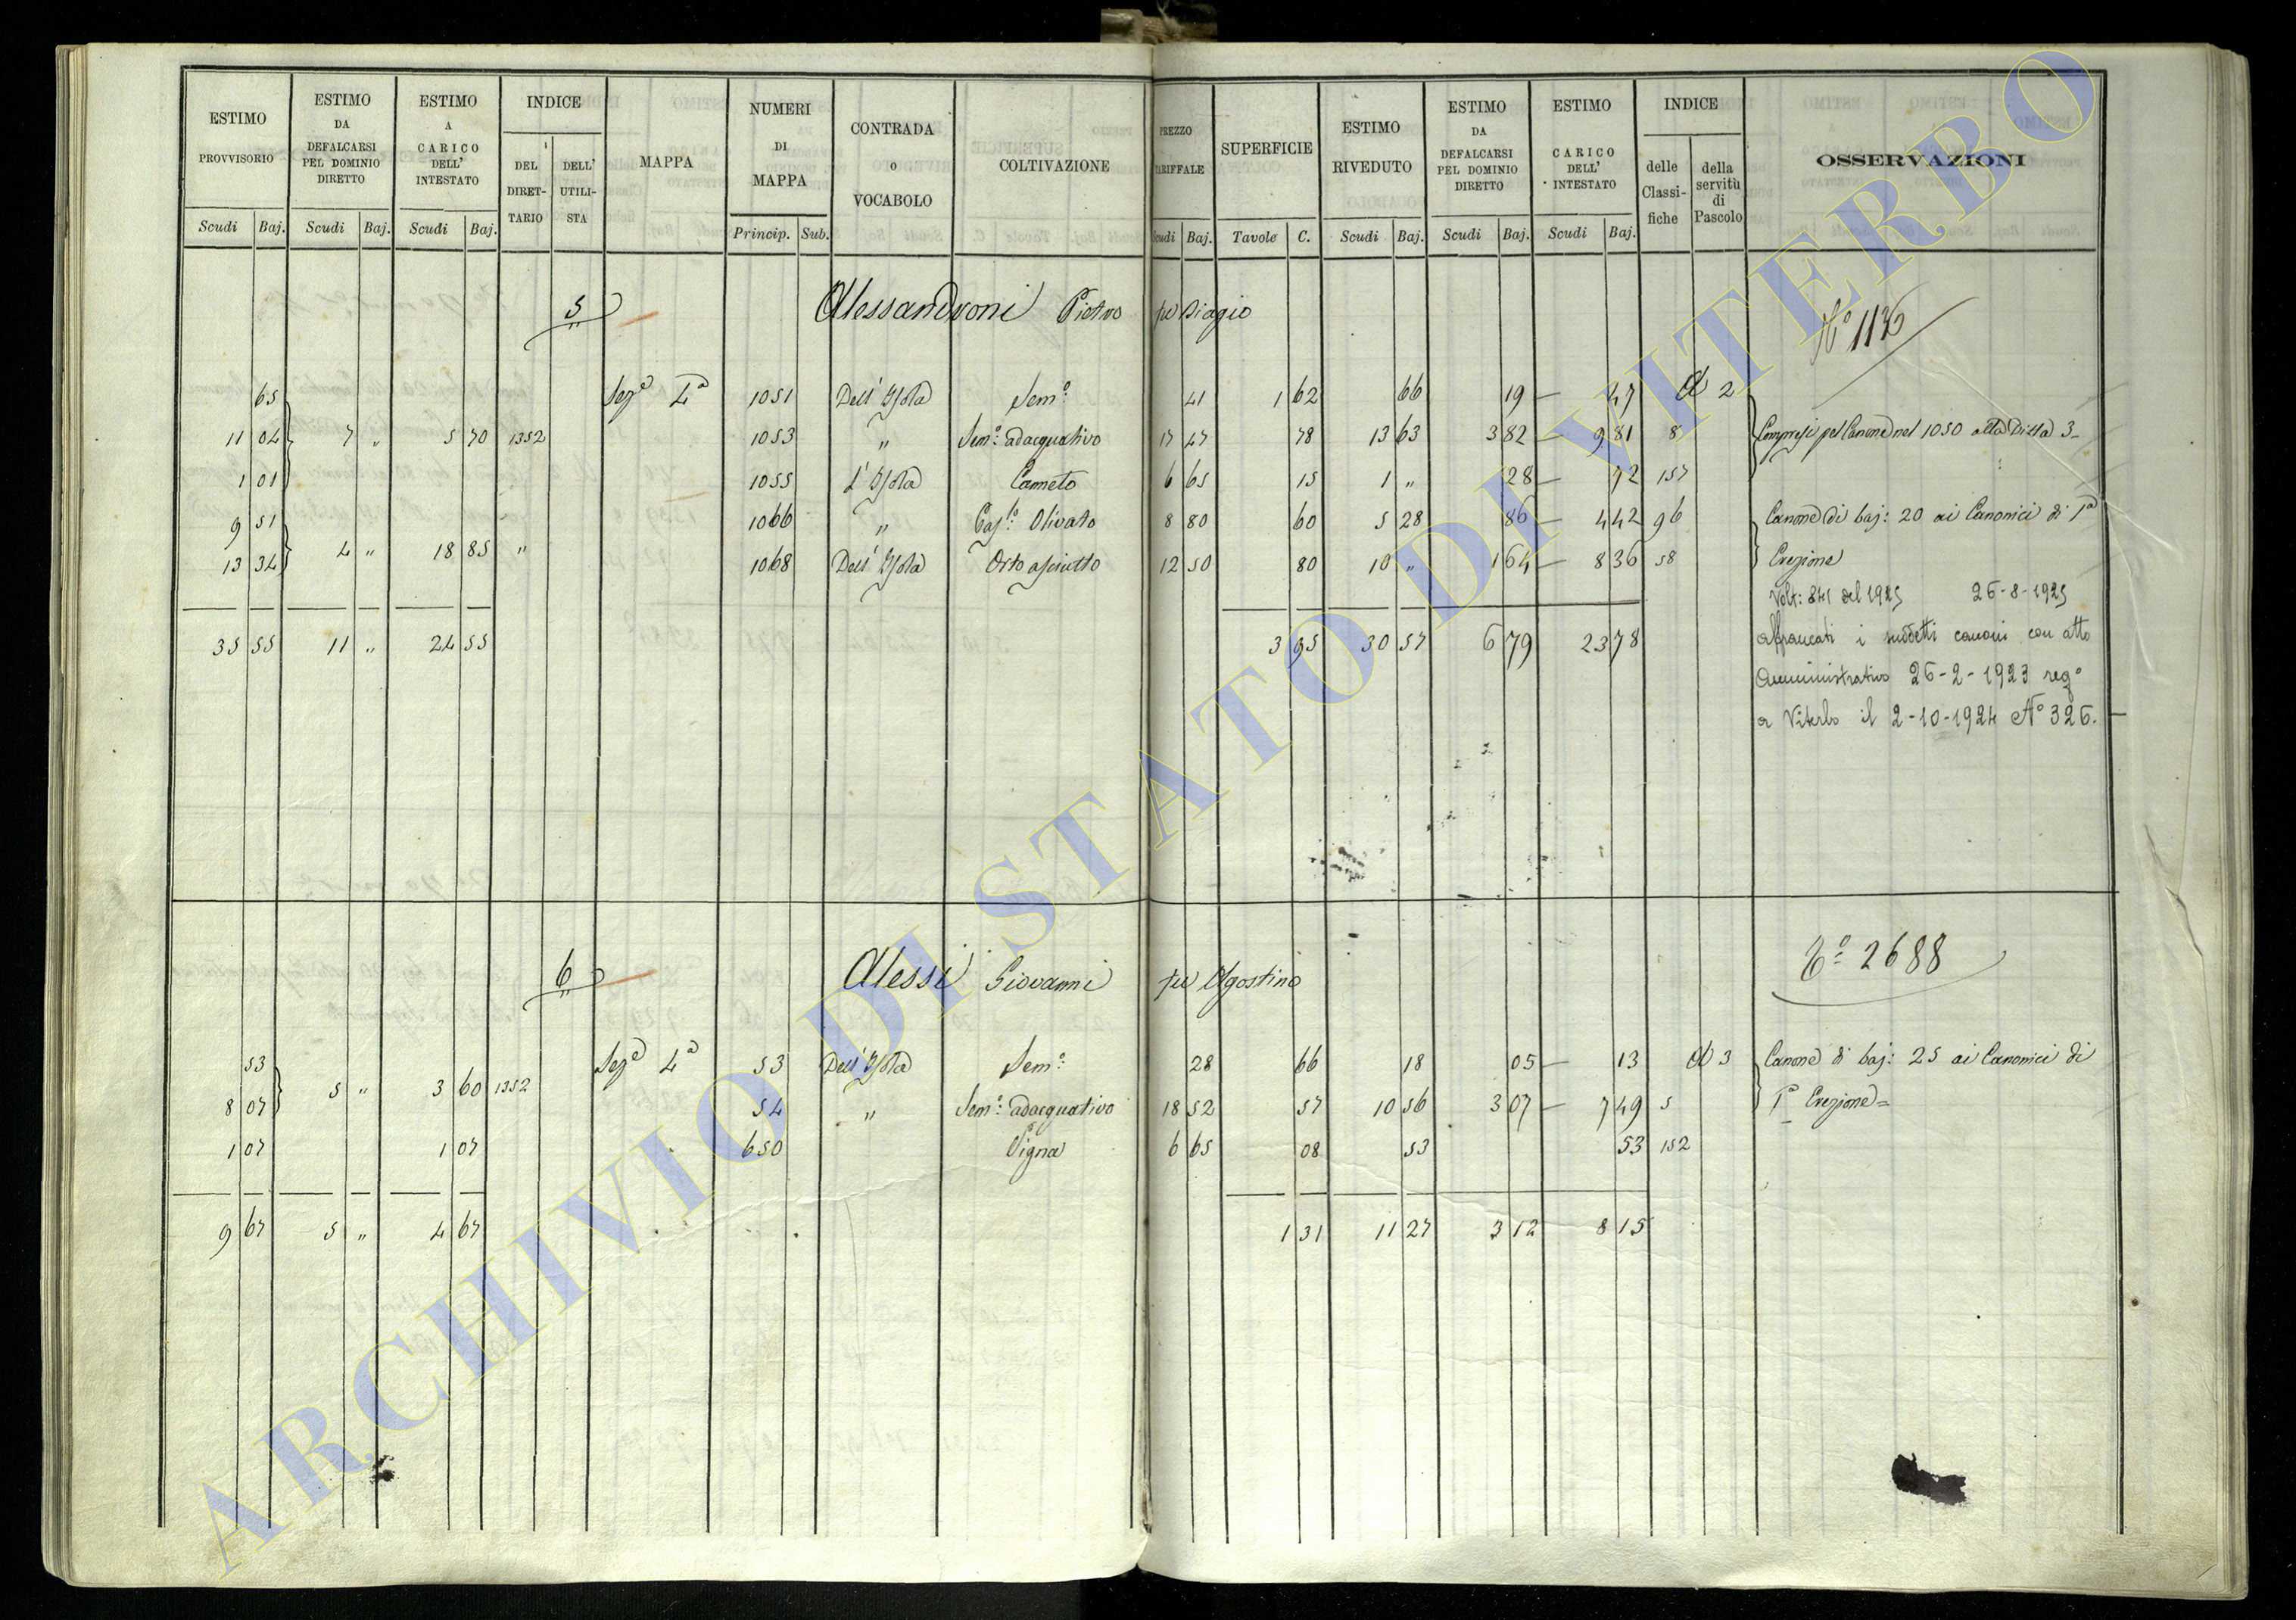 ESTIMO PROVVISORIO ESTIMO DA DEFALCARSI PEL DOMINIO DIRETTO ESTIMO A CARICO DELL' INTESTATO INDICE DEL DIRET-TARIO DELL' UTILI-STA MAPPA NUMERI DI MAPPA CONTRADA o VOCABOLO COLTIVAZIONE PREZZO TARIFFALE SUPERFICIE ESTIMO RIVEDUTO ESTIMO DA DEFALCARSI PEL DOMINIO DIRETTO ESTIMO A CARICO DELL' INTESTATO INDICE delle Classi-fiche della servitù di Pascolo OSSERVAZIONI
Scudi Baj. Scudi Baj. Scudi Baj. Princip. Sub. Scudi Baj. Tavole C. Scudi Baj. Scudi Baj. Scudi Baj.
5 Alessandroni Pietro fu Biagio
65 Seze 4a 1051 Dell' Isola Sem:o 41 1 62 66 19 — 47 A 2
11 04 7 " 5 70 1352 1053 " Sem:o adacquativo 17 47 78 13 63 3 82 — 9 81 8 Compresi pel Canone nel 1050 alla Ditta 3_
1 01 1055 L' Isola Canneto 6 65 15 1 " 28 — 72 157
9 51 1066 " Olivato 8 80 60 5 28 86 — 4 42 96 Canone di baj: 20 ai Canonici di 1a
13 34 4 " 18 85 " 1068 Dell' Isola Orto asciutto 12 50 80 10 " 1 64 — 8 36 58 Erezione
Volt: 841 del 1925 26-8-1925
35 55 11 " 24 55 3 95 30 57 6 79 23 78 affrancati i suddetti canoni con atto
Amministrativo 26-2-1923 rego
a Viterbo il 2-10-1924 No 326.
6 Alessi Giovanni fu Agostino
2688
53 Sezе 4a 53 Dell' Isola Sem:o 28 66 18 05 — 13 A 3 Canone di baj: 25 ai Canonici di
8 07 5 " 3 60 1352 54 " Sem:o adacquativo 18 52 57 10 56 3 07 — 7 49 5 1a Erezione=
1 07 1 07 650 Vigna 6 65 08 53 53 152
9 67 5 " 4 67 1 31 11 27 3 12 8 15
ARCHIVIO DI STATO DI VITERBO